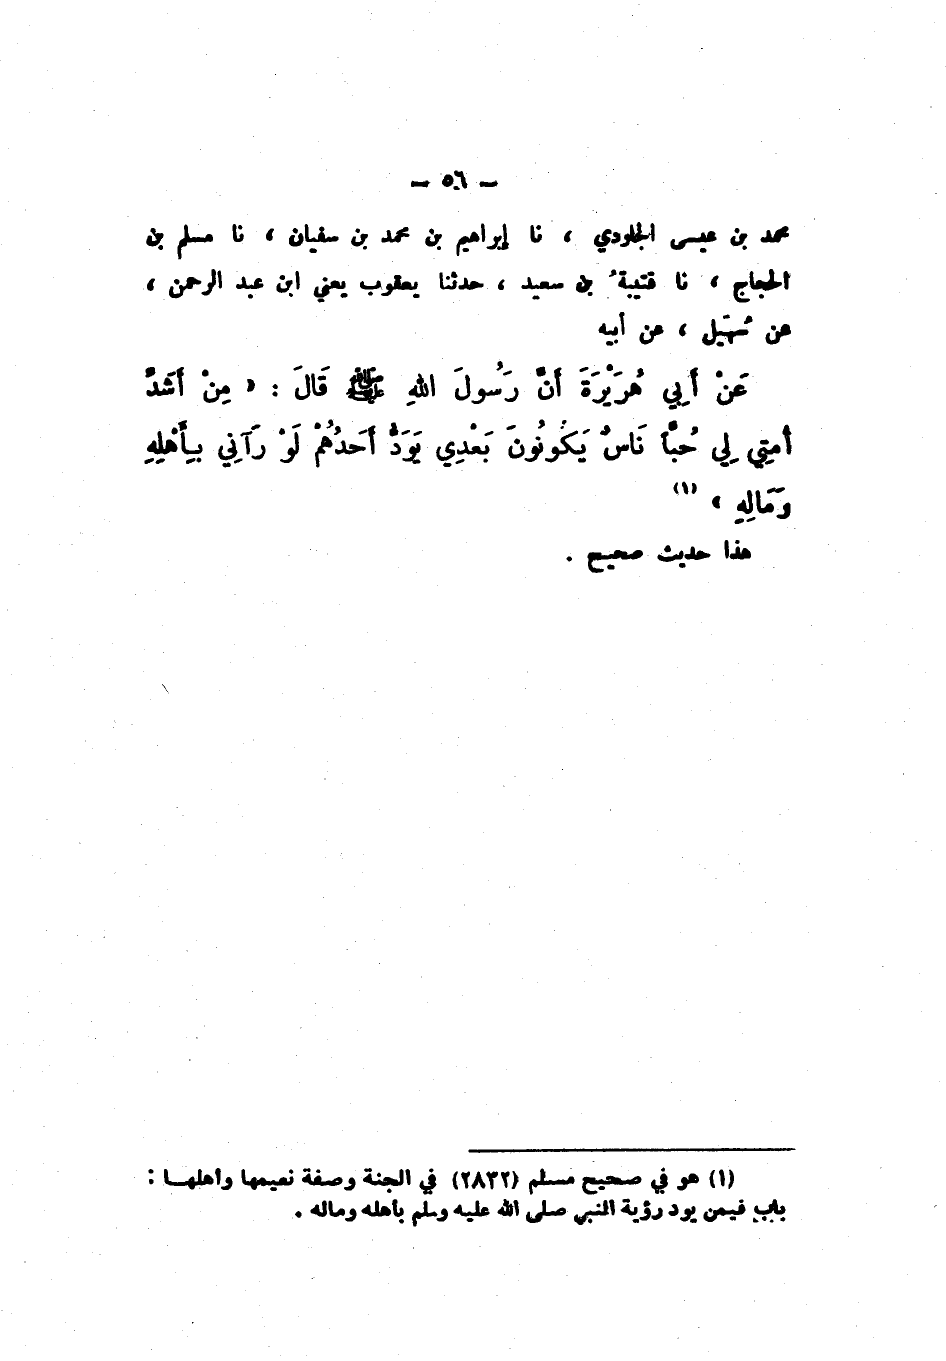 – ٥٦ –
محمد بن عيسى الجلودي ، نا إبراهيم بن محمد بن سفيان ، نا مسلم بن
الحجاج ، نا قتيبةُ بن سعيد ، حدثنا يعقوب يعني ابن عبد الرحمن ،
عن سُهَيْل ، عن أبيه
عَنْ أَبِي هُرَيْرَةَ أَنَّ رَسُولَ اللهِ ﷺ قَالَ : « مِنْ أَشَدِّ
أُمَّتِي لِي حُبًّا نَاسٌ يَكُونُونَ بَعْدِي يَوَدُّ أَحَدُهُمْ لَوْ رَآنِي بِأَهْلِهِ
وَمَالِهِ » (١)
هذا حديث صحيح .
(١) هو في صحيح مسلم (٢٨٣٢) في الجنة وصفة نعيمها وأهلها :
باب فيمن يود رؤية النبي صلى الله عليه وسلم بأهله وماله .